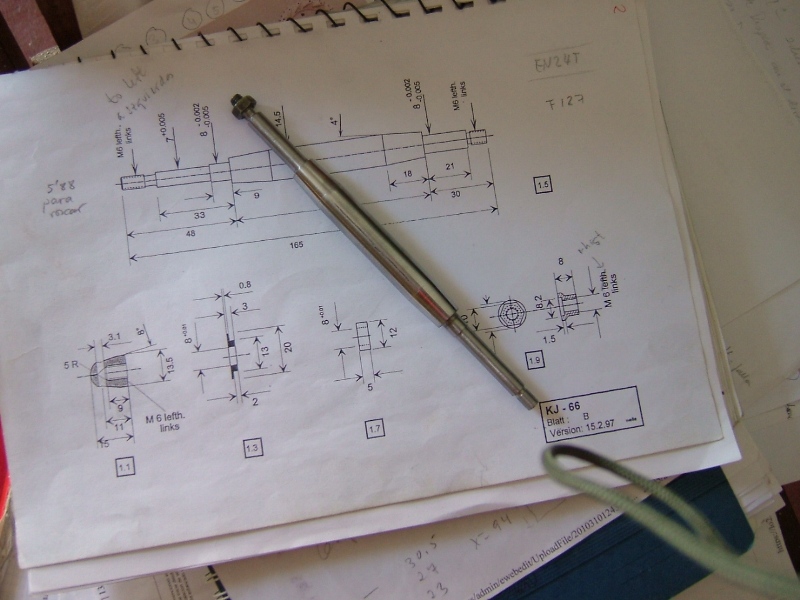 to left
izquierdas
EN24T
F 127
M6 lefth.
links
7 +0.005
8 -0.002
-0.005
14.5
4°
8 -0.002
-0.005
M6 lefth.
links
5'88
para
roscar
9
18
21
33
30
48
165
1.5
0.8
8
3
3.1
8°
8 +0.01
8 +0.01
8.2
M 6 lefth.
links
5 R
13.5
13
20
12
1.5
9
2
5
1.9
M 6 lefth.
links
11
15
1.1
1.3
1.7
KJ - 66
Blatt : B
Version: 15.2.97
30.5
27
23
x = 94
/admin/ewebedit/UploadFile/2010310124